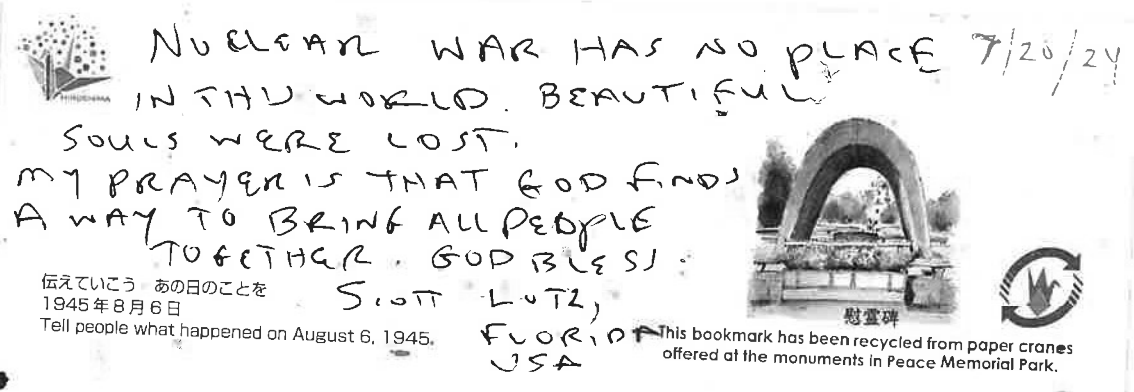 NUCLEAR WAR HAS NO PLACE 7/20/24
IN THIS WORLD. BEAUTIFUL
SOULS WERE LOST.
MY PRAYER IS THAT GOD FINDS
A WAY TO BRING ALL PEOPLE
TOGETHER. GOD BLESS.
SCOTT LUTZ,
FLORIDA
USA
HIROSHIMA
伝えていこう あの日のことを
1945年8月6日
Tell people what happened on August 6, 1945.
慰霊碑
This bookmark has been recycled from paper cranes
offered at the monuments in Peace Memorial Park.